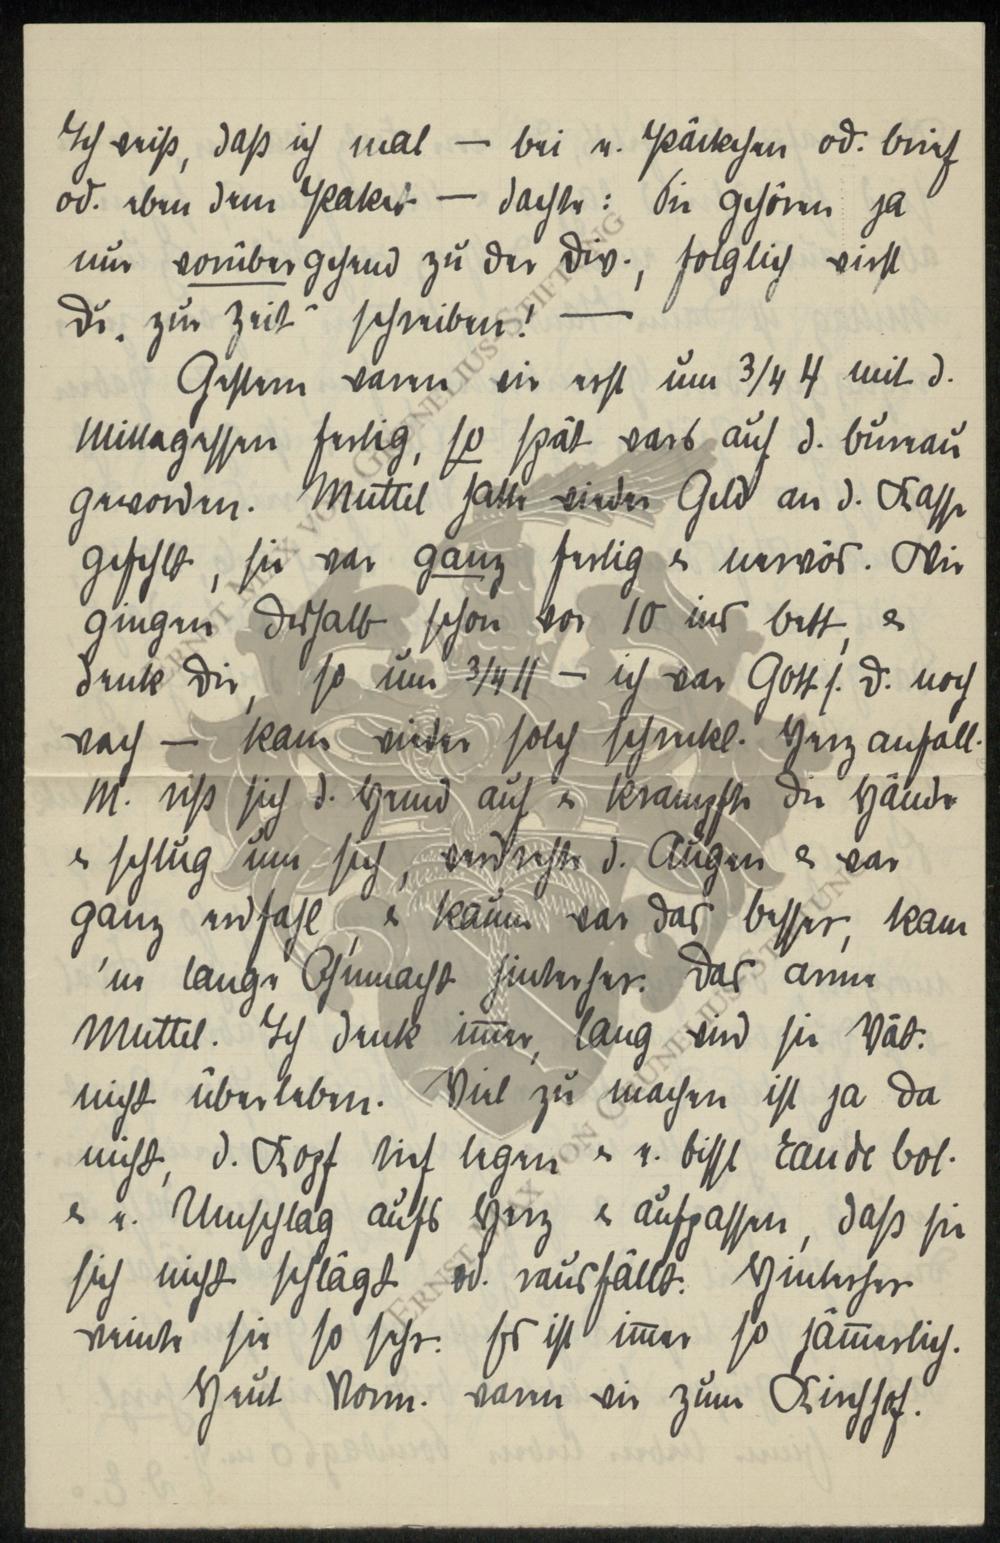 Ich weiß, daß ich mal — bei e. Päckchen od. Brief
od. eben dem Paket — dachte: Sie gehören ja
nur vorübergehend zu der Div., folglich wirst
Du „zur Zeit“ schreiben! —
Gestern waren wir erst um 3/4 4 mit d.
Mittagessen fertig, so spät wars auf d. Bureau
geworden. Muttel hatte wieder Geld an d. Kasse
gefehlt, sie war ganz fertig & nervös. Wir
gingen deshalb schon vor 10 ins Bett, &
denk Dir, so um 3/4 11 — ich war Gott s. D. noch
wach — kam wieder solch schreckl. Herzanfall.
M. riß sich d. Hemd auf & krampfte die Hände
& schlug um sich, verdrehte d. Augen & war
ganz erdfahl, & kaum war das besser, kam
'ne lange Ohnmacht hinterher. Das arme
Muttel. Ich denk im̅er, lang wird sie Vät.
nicht überleben. Viel zu machen ist ja da
nicht, d. Kopf tief legen & e. bissl Eau de Col.
& e. Umschlag aufs Herz & aufpassen, daß sie
sich nicht schlägt od. rausfällt. Hinterher
weinte sie so sehr. Es ist im̅er so jäm̅erlich.
Heut Vorm. waren wir zum Kirchhof.
ERNST MAX VON GRUNELIUS-STIFTUNG
ERNST MAX VON GRUNELIUS-STIFTUNG